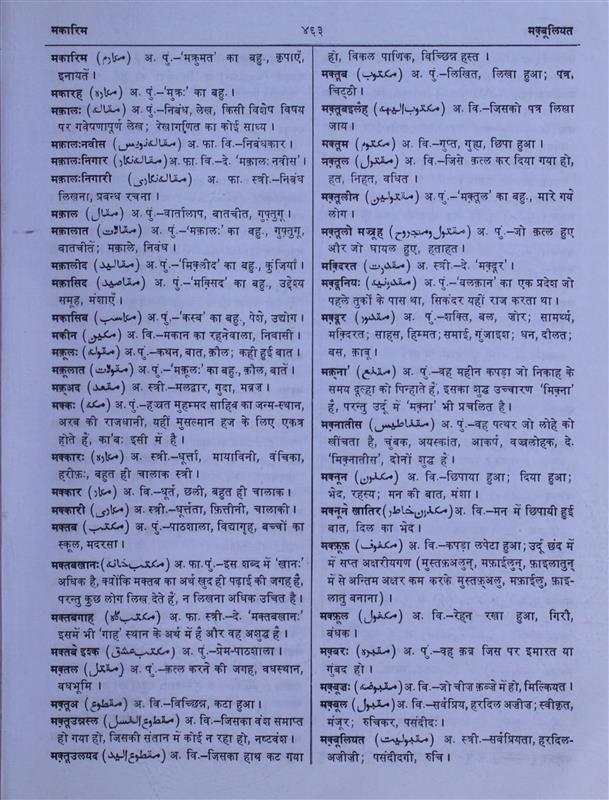 मकारिम
४६३
मक़्बूलियत
मकारिम (مکارم) अ. पुं.–‘मक्रुमत’ का बहु., कृपाएँ,
इनायतें।
मकारह (مکارہ) अ. पुं.–‘मुक्रः’ का बहु.।
मक़ालः (مقالہ) अ. पुं.–निबंध, लेख, किसी विशेष विषय
पर गवेषणापूर्ण लेख; रेखागणित का कोई साध्य।
मक़ालःनवीस (مقالہ نویس) अ. फा. वि.–निबंधकार।
मक़ालःनिगार (مقالہ نگار) अ. फा. वि.–दे. ‘मक़ालः नवीस’।
मक़ालःनिगारी (مقالہ نگاری) अ. फा. स्त्री.–निबंध
लिखना, प्रबन्ध रचना।
मक़ाल (مقال) अ. पुं.–वार्तालाप, बातचीत, गुफ़्तुगू।
मक़ालात (مقالات) अ. पुं.–‘मक़ालः’ का बहु., गुफ़्तुगू,
बातचीतें; मक़ाले, निबंध।
मक़ालीद (مقالید) अ. पुं.–‘मिक़्लीद’ का बहु., कुंजियाँ।
मक़ासिद (مقاصد) अ. पुं.–‘मक़्सिद’ का बहु., उद्देश्य
समूह, मंशाएँ।
मकासिब (مکاسب) अ. पुं.–‘कस्ब’ का बहु., पेशे, उद्योग।
मकीन (مکین) अ. वि.–मकान का रहनेवाला, निवासी।
मक़ूलः (مقولہ) अ. पुं.–कथन, बात, क़ौल; कही हुई बात।
मक़ूलात (مقولات) अ. पुं.–‘मक़ूलः’ का बहु., क़ौल, बातें।
मक़्अद (مقعد) अ. स्त्री.–मलद्वार, गुदा, मब्रज़।
मक्कः (مکہ) अ. पुं.–हज़्रत मुहम्मद साहिब का जन्म-स्थान,
अरब की राजधानी, यहीं मुसल्मान हज के लिए एकत्र
होते हैं, का’बः इसी में है।
मक्कारः (مکارہ) अ. स्त्री.–धूर्त्ता, मायाविनी, वंचिका,
हर्राफ़ः, बहुत ही चालाक स्त्री।
मक्कार (مکار) अ. वि.–धूर्त, छली, बहुत ही चालाक।
मक्कारी (مکاری) अ. स्त्री.–धूर्त्तता, फ़ित्तीनी, चालाकी।
मक्तब (مکتب) अ. पुं.–पाठशाला, विद्यागृह, बच्चों का
स्कूल, मदरसा।
मक्तबखानः (مکتب خانہ) अ. फा. पुं.–इस शब्द में ‘खानः’
अधिक है, क्योंकि मक्तब का अर्थ खुद ही पढ़ाई की जगह है,
परन्तु कुछ लोग लिख देते हैं, न लिखना अधिक उचित है।
मक्तबगाह (مکتب گاہ) अ. फा. स्त्री.–दे. ‘मक्तबखानः’
इसमें भी ‘गाह’ स्थान के अर्थ में है और वह अशुद्ध है।
मक्तबे इश्क़ (مکتب عشق) अ. पुं.–प्रेम-पाठशाला।
मक़्तल (مقتل) अ. पुं.–क़त्ल करने की जगह, वधस्थान,
वधभूमि।
मक़्तूअ (مقطوع) अ. वि.–विच्छिन्न, कटा हुआ।
मक़्तूउन्नस्ल (مقطوع النسل) अ. वि.–जिसका वंश समाप्त
हो गया हो, जिसकी संतान में कोई न रहा हो, नष्टवंश।
मक़्तूउलयद (مقطوع الید) अ. वि.–जिसका हाथ कट गया
हो, विकल पाणिक, विच्छिन्न हस्त।
मक्तूब (مکتوب) अ. पुं.–लिखित, लिखा हुआ; पत्र,
चिट्ठी।
मक्तूबइलैह (مکتوب الیہ) अ. वि.–जिसको पत्र लिखा
जाय।
मक्तूम (مکتوم) अ. वि.–गुप्त, गुह्य, छिपा हुआ।
मक़्तूल (مقتول) अ. पुं.–जिसे क़त्ल कर दिया गया हो,
हत, निहत, वधित।
मक़्तूलीन (مقتولین) अ. पुं.–‘मक़्तूल’ का बहु., मारे गये
लोग।
मक़्तूलो मज्रूह (مقتول و مجروح) अ. पुं.–जो क़त्ल हुए
और जो घायल हुए, हताहत।
मक़्दिरत (مقدرت) अ. स्त्री.–दे. ‘मक़्दूर’।
मक़्दूनियः (مقدونیہ) अ. पुं.–‘बलक़ान’ का एक प्रदेश जो
पहले तुर्कों के पास था, सिकंदर यहीं राज करता था।
मक़्दूर (مقدور) अ. पुं.–शक्ति, बल, ज़ोर; सामर्थ्य,
मक़्दिरत; साहस, हिम्मत; समाई, गुंजाइश; धन, दौलत;
बस, क़ाबू।
मक़्ना’ (مقنع) अ. पुं.–वह महीन कपड़ा जो निकाह के
समय दूल्हा को पिन्हाते हैं, इसका शुद्ध उच्चारण ‘मिक़्ना’
है, परन्तु उर्दू में ‘मक़्ना’ भी प्रचलित है।
मक़्नातीस (مقناطیس) अ. पुं.–वह पत्थर जो लोहे को
खींचता है, चुंबक, अयस्कांत, आकर्ष, वज्रलोहक, दे.
‘मिक़्नातीस’, दोनों शुद्ध हैं।
मक्नून (مکنون) अ. वि.–छिपाया हुआ; दिया हुआ;
भेद, रहस्य; मन की बात, मंशा।
मक्नूने खातिर (مکنون خاطر) अ. वि.–मन में छिपायी हुई
बात, दिल का भेद।
मक्फ़ूफ़ (مکفوف) अ. वि.–कपड़ा लपेटा हुआ; उर्दू छंद में
में सप्त अक्षरीयगण (मुस्तफ़्अलुन्, मफ़ाईलुन्, फ़ाइलातुन्
में से अन्तिम अक्षर कम करके मुस्तफ़्अलु, मफ़ाईलु, फ़ाइ-
लातु बनाना)।
मक्फ़ूल (مکفول) अ. वि.–रेह्न रखा हुआ, गिरौ,
बंधक।
मक़्बरः (مقبرہ) अ. पुं.–वह क़ब्र जिस पर इमारत या
गुंबद हो।
मक़्बूज़ः (مقبوضہ) अ. वि.–जो चीज़ क़ब्ज़े में हो, मिल्कियत।
मक़्बूल (مقبول) अ. वि.–सर्वप्रिय, हरदिल अज़ीज़; स्वीकृत,
मंज़ूर; रुचिकर, पसंदीदः।
मक़्बूलियत (مقبولیت) अ. स्त्री.–सर्वप्रियता, हरदिल-
अज़ीज़ी; पसंदीदगी, रुचि।